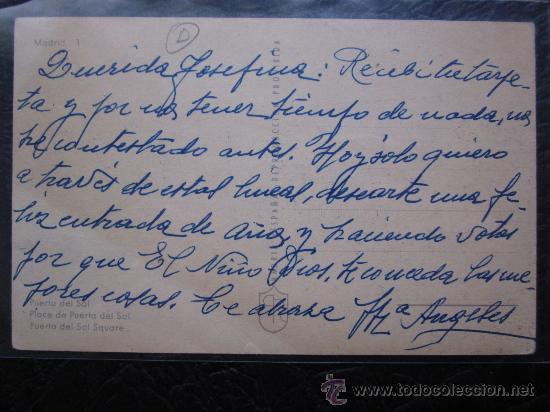 Madrid. 1
D
Querida Josefina: Recibí tu tarje-
ta y por no tener tiempo de nada, no
he contestado antes. Hoy solo quiero
a través de estas lineas, desearte una fe-
liz entrada de año, y haciendo votos
por que El Niño Dios, te conceda las me-
jores cosas. Te abraza Mª Angeles
Puerta del Sol
Place de Puerta del Sol
Puerta del Sol Square
todocoleccion
www.todocoleccion.net